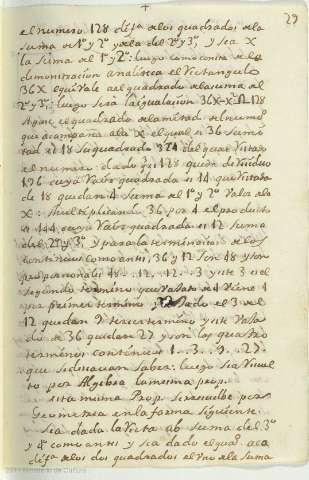 +
29
el numero 128 difa. de los quadrados de la
suma del 1º y 2º y de la del 2º y 3º, y sea X
la suma del 1º y 2º: luego como consta de la
demonstracion Analitica el Rectangulo
36X equivale al quadrado de la suma del
2º y 3º: luego sera la igualacion 36X-x²
128
el quadrado de la mitad del num.
que acompaña a la X el qual es 36 su mi
tad es 18 su quadrado 324 del qual
el numero dado 128 queda de residuo
196 cuya Raiz quadrada es 14 que
de 18 quedan 4 suma del 1º y 2º Valor de la
X: multiplicando 36 por 4 el producto
es 144 cuya Raiz quadrada es 12 suma
del 2º y 3º. y para la terminacion de los
continuos como antes, 36 y 12 son 48 y son
proporcionales 48..12..12..3 y este 3 es el
segundo termino que de 4 Viene 1
por primer termino y el 3 de
12 quedan 9 tercer termino y este
de 36 quedan 27 y son los quatro
terminos continuos 1..3..9..27.
que se deseavan saber. luego sea
to por Algebra la mesma prop.
esta mesma Prop. se resuelbe por
Geometria en la forma siguiente.
Sea dada la recta ab suma del 3º
y 4º como antes y sea dado el qual a la
difa. de los dos quadrados el uno de la suma
Ministerio de Cultura